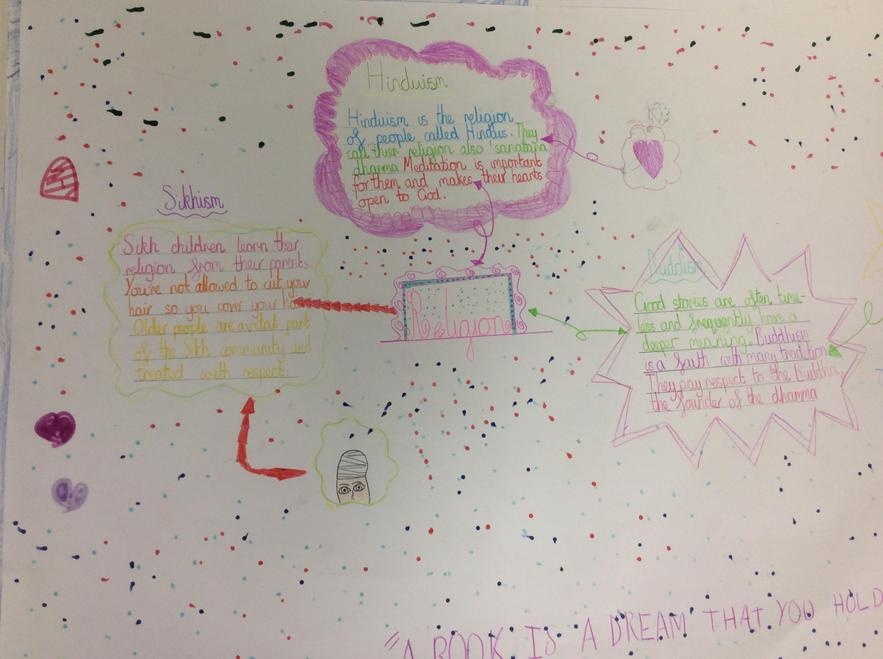 Hinduism
Hinduism is the religion
of people called Hindus. They
call their religion also 'sanatana
dharma Meditation is important
for them and makes their hearts
open to God.
Sikhism
Sikh children learn their
religion from their parents.
You're not allowed to cut your
hair so you cover your
Older people are a vital part
of the Sikh community and
treated with respect
Religion
Buddhism
Good stories are often time-
less and frequently have a
deeper meaning. Buddhism
is a faith with many tradition
They pay respect to the Buddha,
the founder of the dhamma
"A BOOK IS A DREAM THAT YOU HOLD